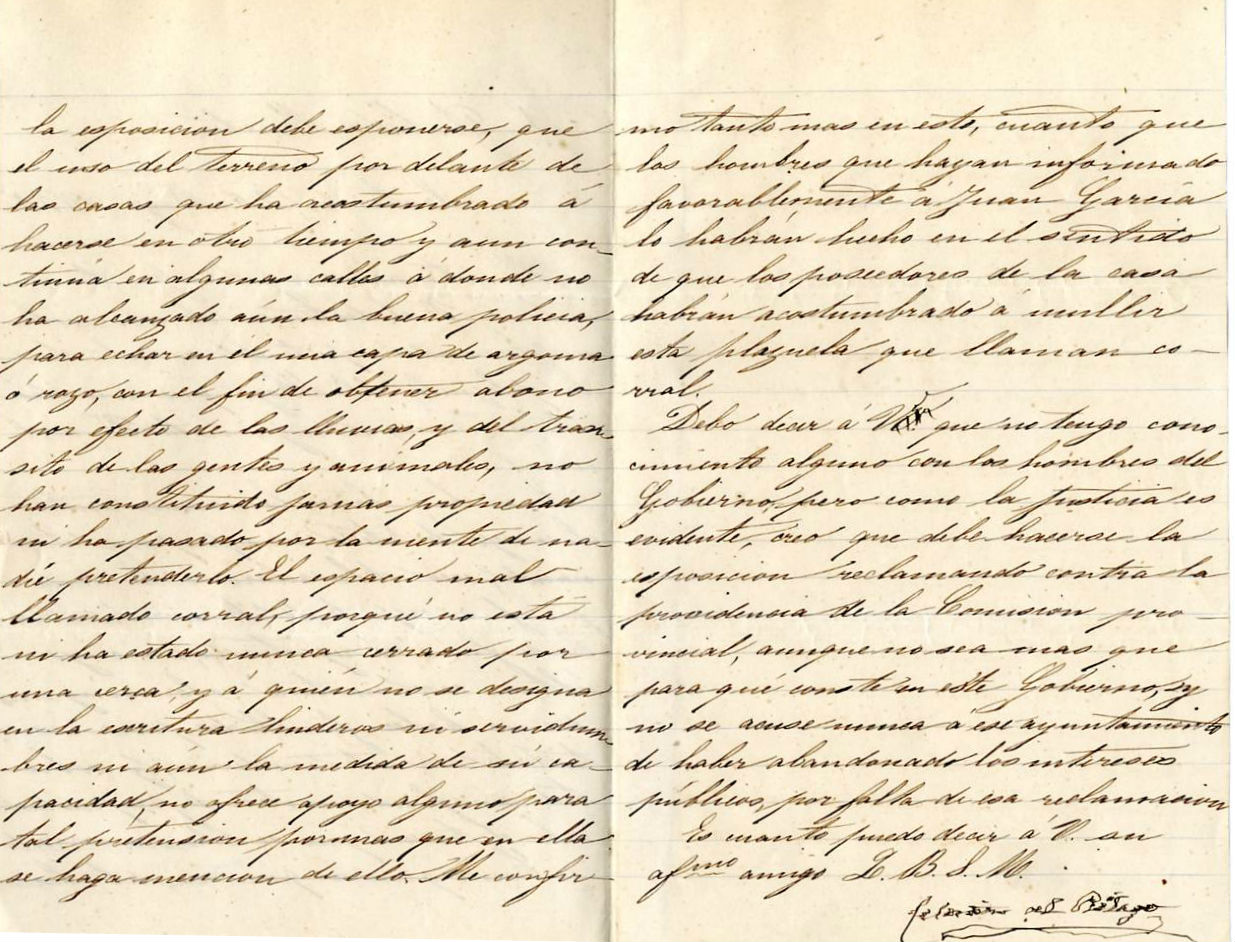 la esposicion debe esponerse, que
el uso del terreno por delante de
las casas que ha acostumbrado á
hacerse en otro tiempo y aun con-
tinúa en algunas calles á donde no
ha alcanzado aún la buena policia,
para echar en el una capa de argoma
ó rozo, con el fin de obtener abono
por efecto de las lluvias, y del tran-
sito de las gentes y animales, no
han constituido jamas propiedad
ni ha pasado por la mente de na-
die pretenderlo. El espacio mal
llamado corral, porqué no está
ni ha estado nunca cerrado por
una cerca y á quién no se designa
en la escritura linderos ni servidum-
bres ni aún la medida de sú ca-
pacidad, no ofrece apoyo alguno para
tal pretension por mas que en ella
se haga mencion de ello. Me confir-
mo tanto mas en esto, cuanto que
los hombres que hayan informado
favorablemente á Juan García
lo habrán hecho en el sentido
de que los poseedores de la casa
habrán acostumbrado á mullir
esta plazuela que llaman co-
rral.
Debo decir á V. que no tengo cono-
cimiento alguno con los hombres del
Gobierno, pero como la justicia es
evidente, creo que debe hacerse la
esposicion reclamando contra la
providencia de la Comision pro-
vincial, aunque no sea mas que
para qué conste en este Gobierno, y
no se acuse nunca á ese ayuntamiento
de haber abandonado los intereses
públicos, por falta de esa reclamacion
Es cuanto puedo decir á V. su
af.mo amigo Q. B. S. M.
del Piélago